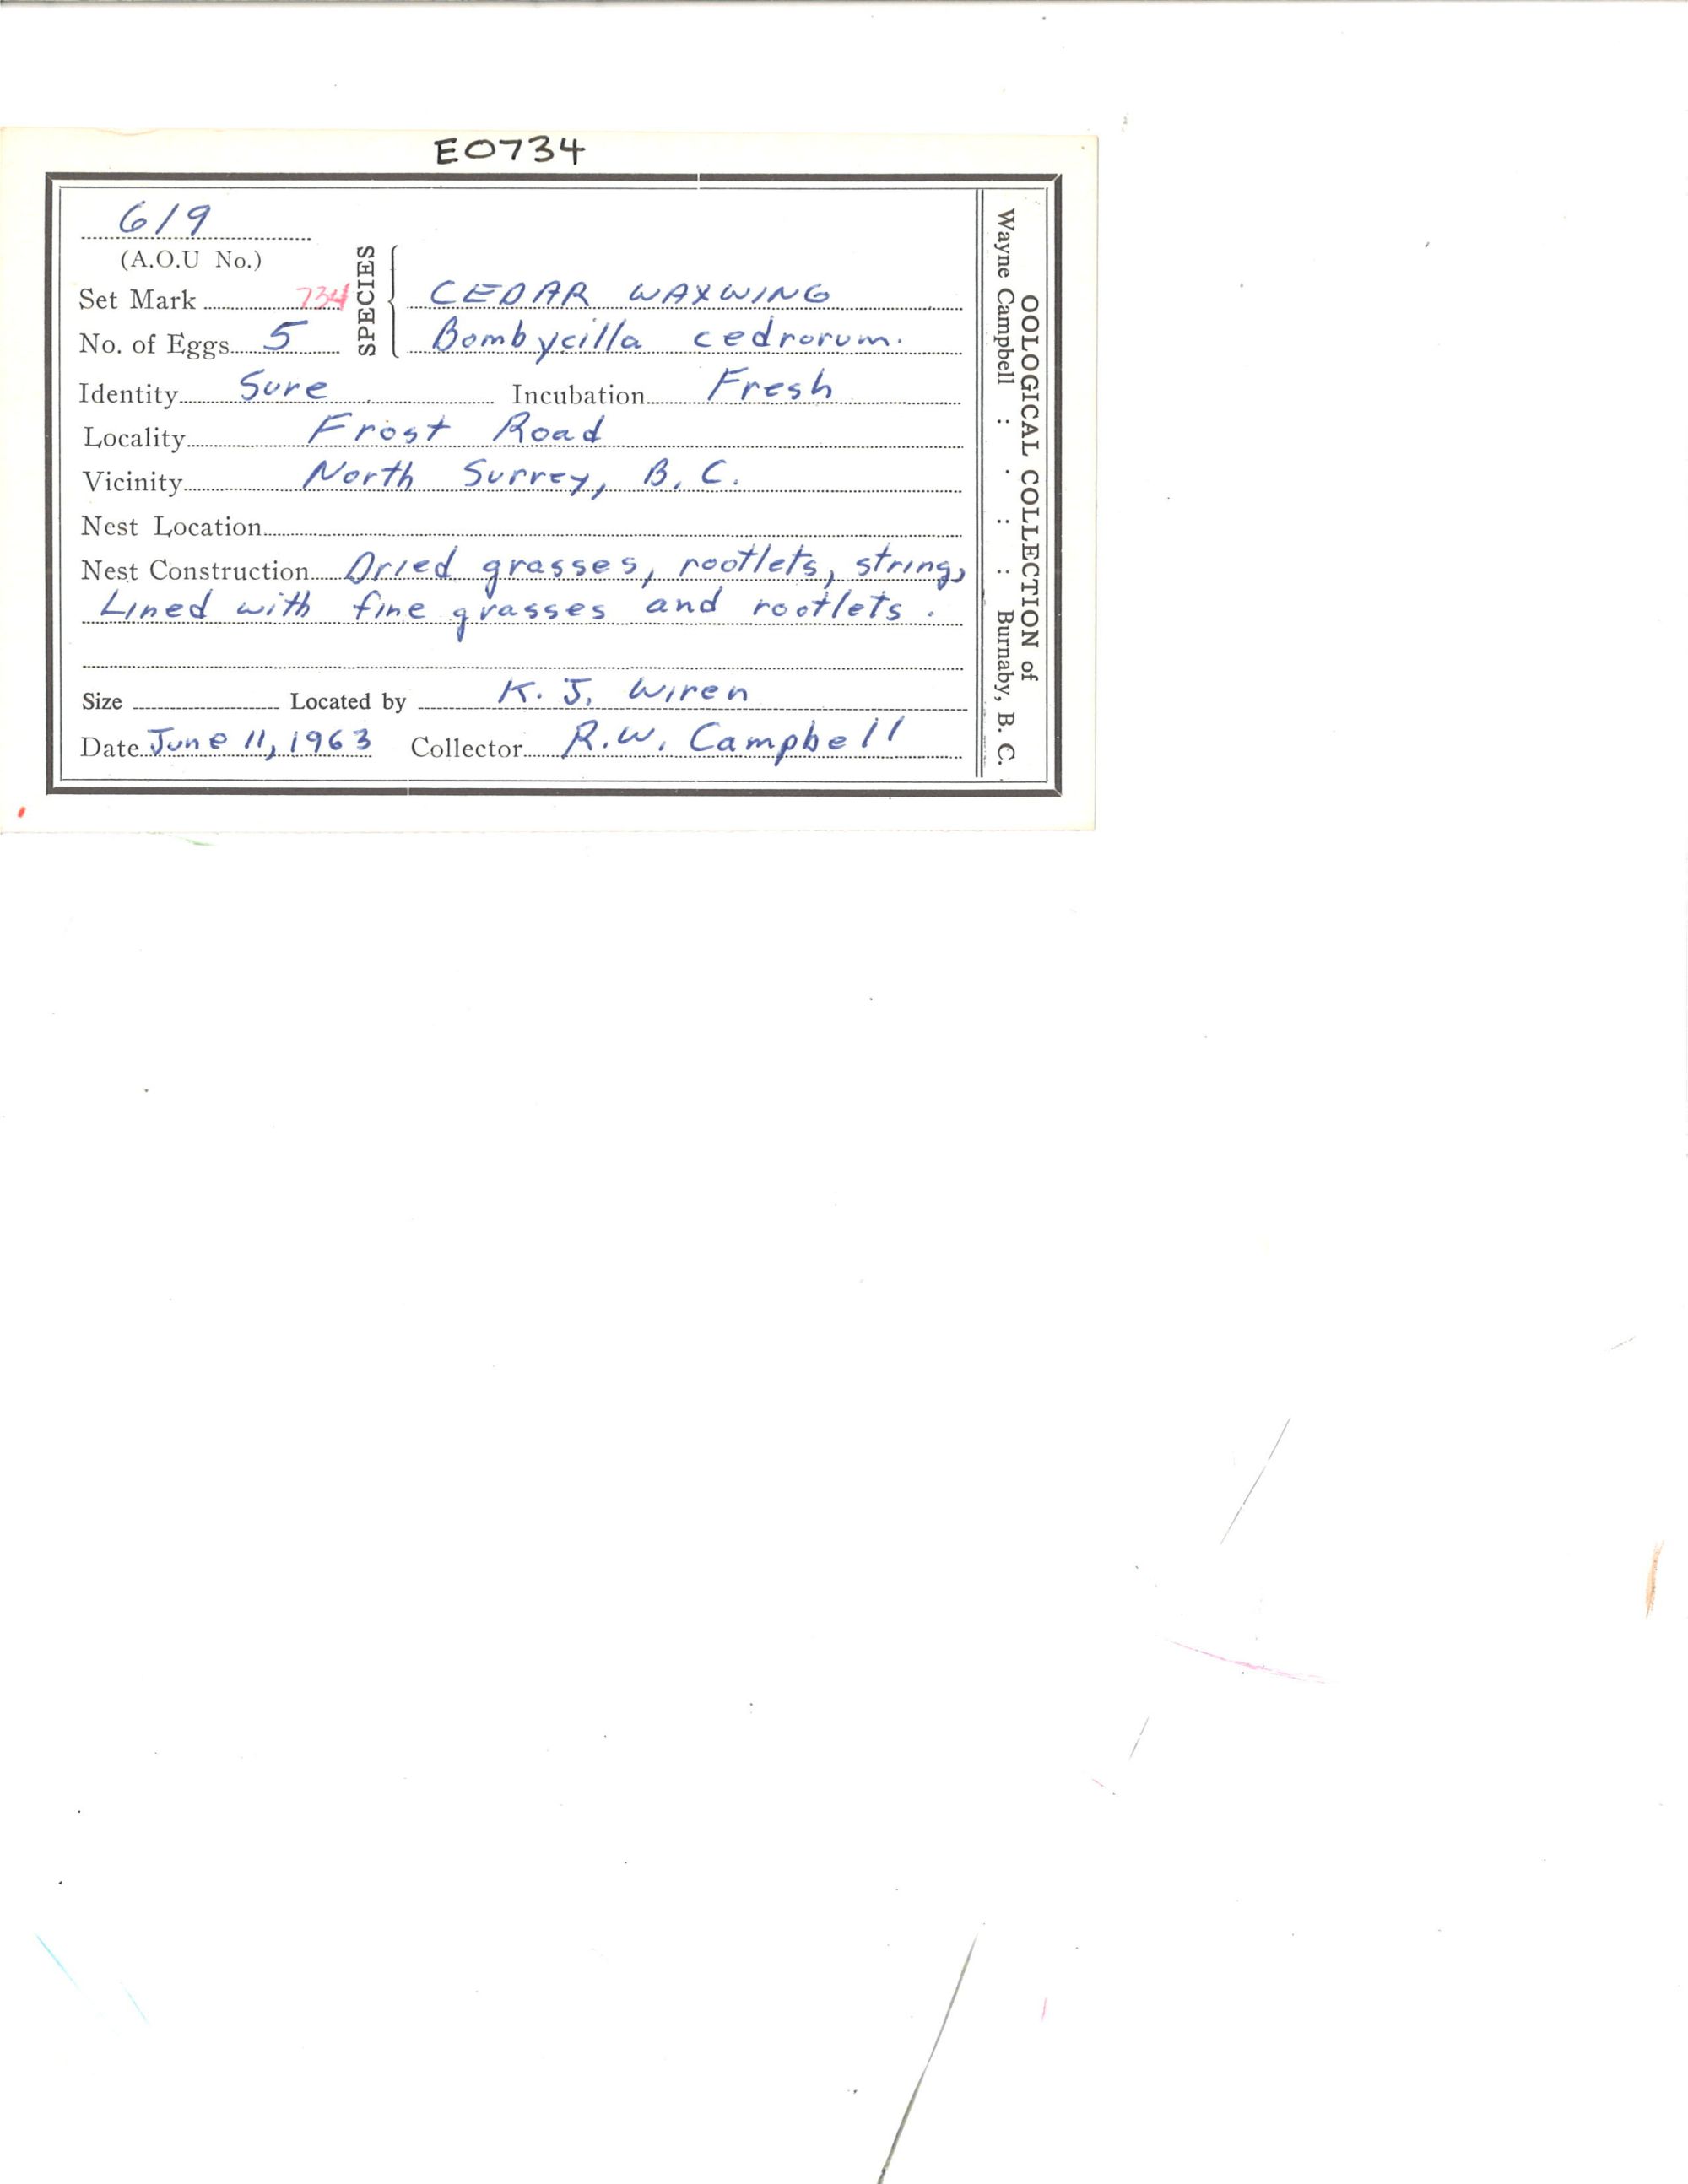 E0734
619
(A.O.U No.)
Set Mark 734
No. of Eggs 5
SPECIES
CEDAR WAXWING
Bombycilla cedrorum.
Identity Sure Incubation Fresh
Locality Frost Road
Vicinity North Surrey, B.C.
Nest Location
Nest Construction Dried grasses, rootlets, string,
Lined with fine grasses and rootlets.
Size Located by K. J. Wiren
Date June 11, 1963 Collector R.W. Campbell
OOLOGICAL COLLECTION of
Wayne Campbell : . : : : Burnaby, B. C.